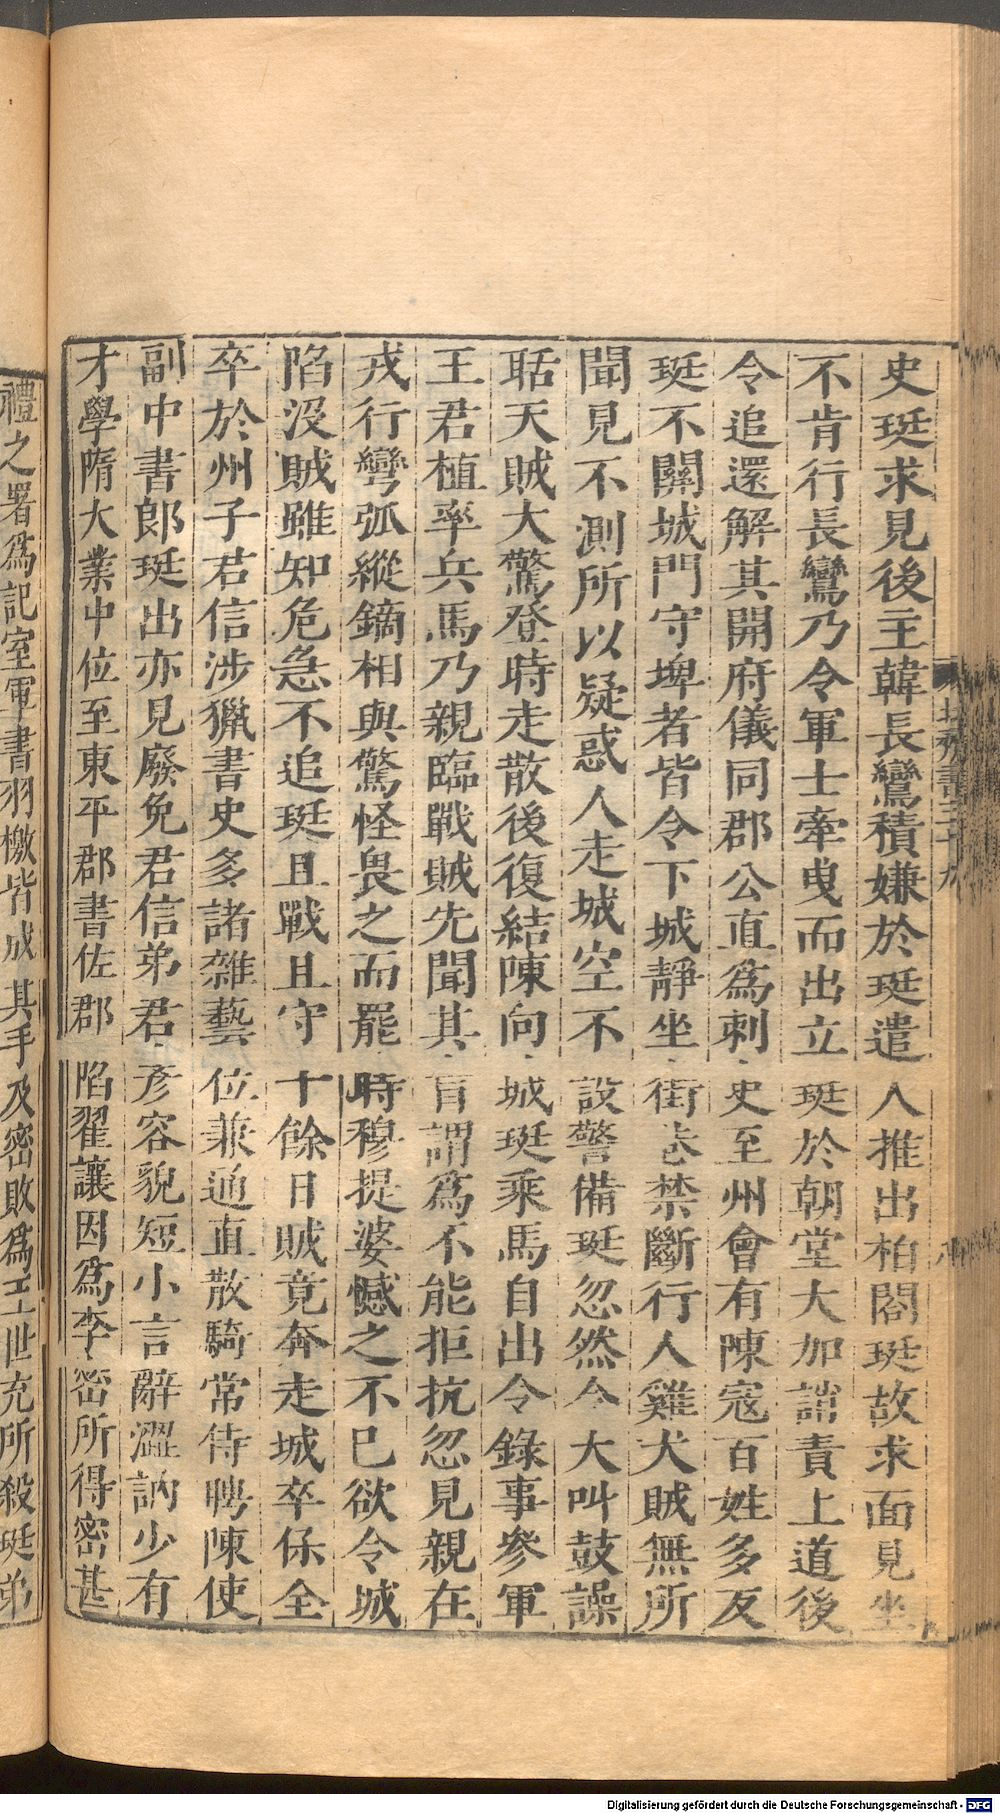 史珽求見後主韓長鸞積嫌於珽遣人推出柏閣珽故求面見坐
不肯行長鸞乃令軍士牽曳而出立珽於朝堂大加誚責上道後
令追還解其開府儀同郡公直為刺史至州會有陳寇百姓多反
珽不關城門守埤者皆令下城靜坐街巷禁斷行人雞犬賊無所
聞見不測所以疑惑人走城空不設警備珽忽然令大叫鼓譟
聒天賊大驚登時走散後復結陳向城珽乘馬自出令錄事參軍
王君植率兵馬乃親臨戰賊先聞其盲謂為不能拒抗忽見親在
戎行彎弧縱鏑相與驚怪畏之而罷時穆提婆憾之不已欲令城
陷沒賊雖知危急不追珽且戰且守十餘日賊竟奔走城卒保全
卒於州子君信涉獵書史多諸雜藝位兼通直散騎常侍聘陳使
副中書郎珽出亦見廢免君信弟君彥容貌短小言辭澀訥少有
才學隋大業中位至東平郡書佐郡陷翟讓因為李密所得密甚
禮之署爲記室軍書羽檄皆成其手及密敗爲王世充所殺珽弟
Digitalisierung gefördert durch die Deutsche Forschungsgemeinschaft - DFG